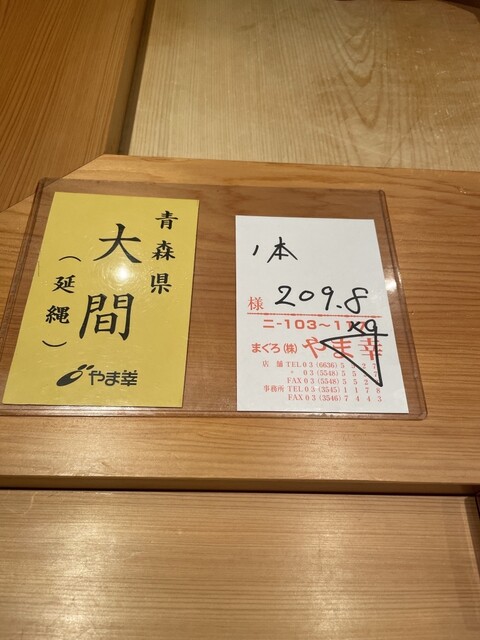 青森県
大間
（延縄）
やま幸
1本
様 209.8
kg
ニ-103~1
まぐろ(株) やま幸
店 舗 TEL 03 (6636) 5 3 2 7
〃 03 (5548) 5 5
FAX 03 (5548) 5 5 2
事務所 TEL 03 (3545) 1 1 7 8
FAX 03 (3546) 7 4 4 3